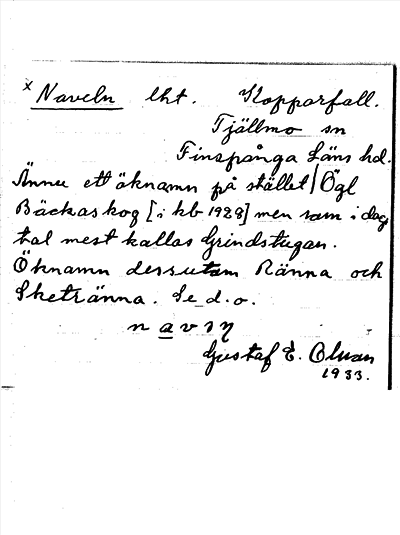 x Naveln lht. Kopparfall.
Tjällmo sn
Finspånga Läns hd.
Ännu ett öknamn på stället | Ögl
Bäckaskog [i kb 1928] men som i dag-
tal mest kallas Grindstugan.
Öknamn dessutom Ränna och
Sketränna. Se d.o.
n a v ı η
Gustaf E. Olson
1933.